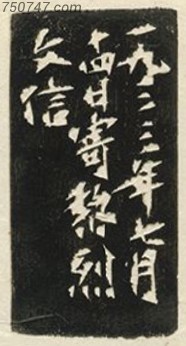 750747.com
一九三三年七月
十四日寄黎烈
文信